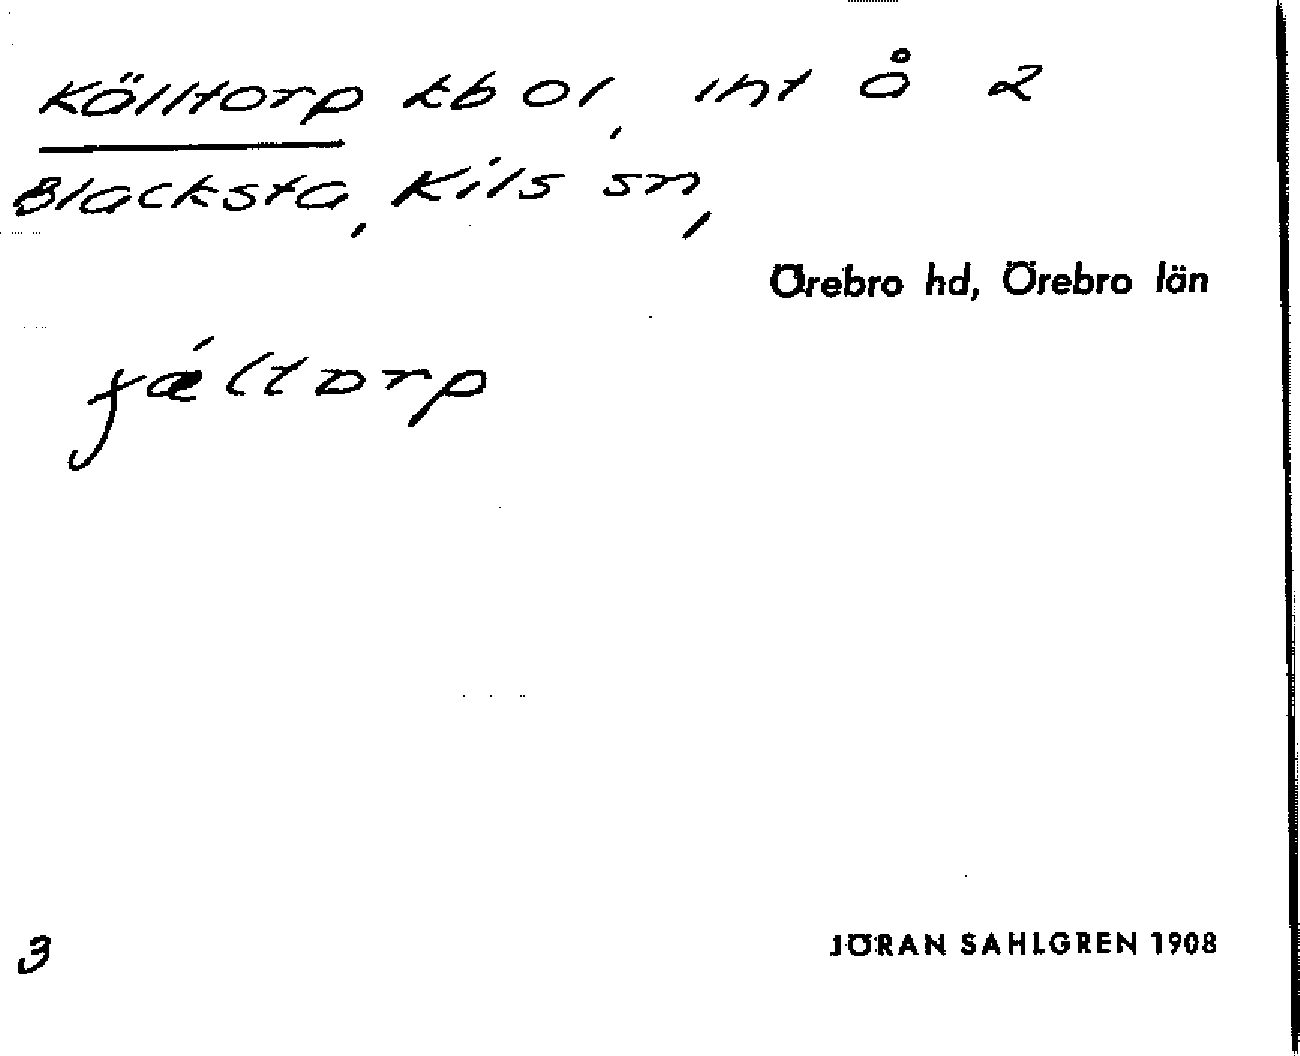 Källtorp kbol, int å 2
Blacksta, Kils sn,
Örebro hd, Örebro län
fǽltorp
3 JÖRAN SAHLGREN 1908